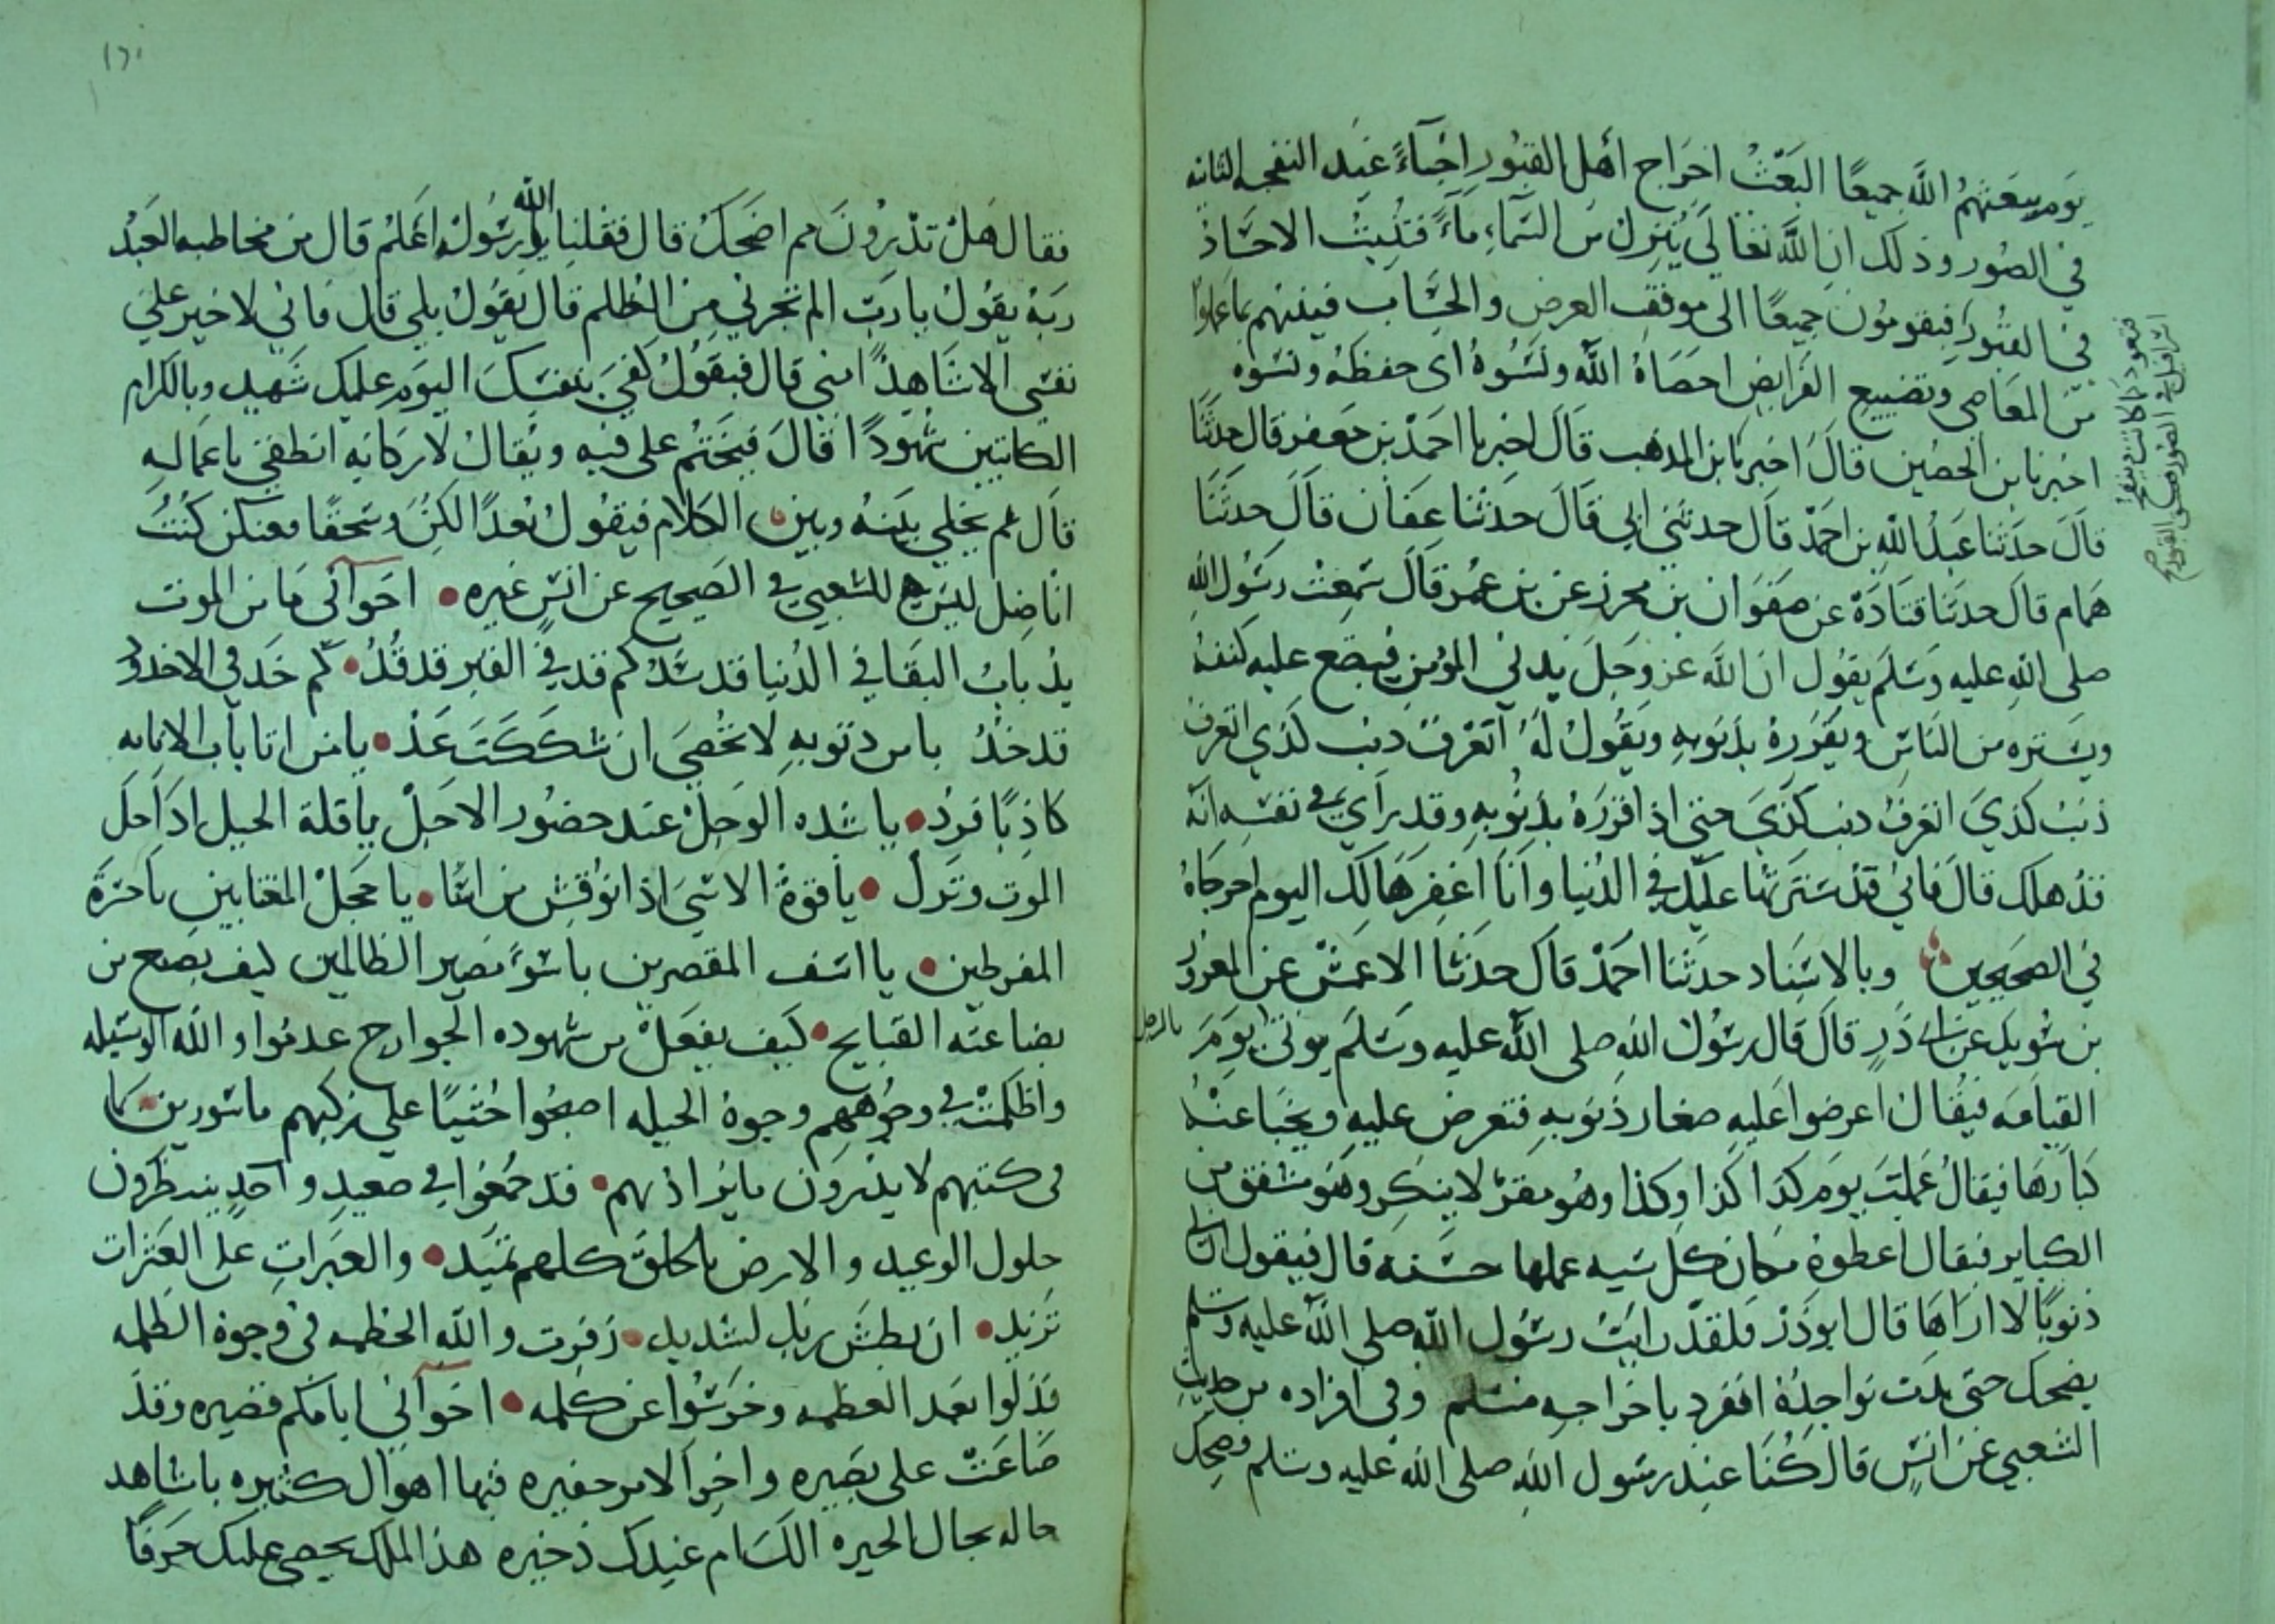 يوم يبعثهم الله جميعا البعث اخراج أهل القبور احياءً عند النفخه الثانيه
في الصور وذلك ان الله تعالى ينزل من السماء ماءً فتنبت الاجساد
في القبور فيقومون جميعًا الى موقف العرض والحساب فينبئهم بما عملوا
من المعاصي وتضييع الفرايض احصاهُ الله ونسوهُ اى حفظه ونسوه
اخبرنا بن الحصين قال اخبرنا بن المذهب قال اخبرنا احمد بن جعفر قال حدثنا
قال حدثنا عبد الله بن احمد قال حدثني ابي قال حدثنا عفان قال حدثنا
همام قال حدثنا قتادة عن صفوان بن محرز عن بن عمر قال سمعت رسول الله
صلى الله عليه وسلم يقول ان الله عز وجل يدني المؤمن فيضع عليه كنفهُ
ويستره من الناس ويقررهُ بذنوبه ويقول لهُ اتعرف ذنب كذي اتعرف
ذنب كذي اتعرف ذنب كذي حتى اذ اقررهُ بذنوبه وقد راي في نفسه انه
قد هلك قال فاني قد سترتها عليك في الدنيا وانا اغفرها لك اليوم اخرجاهُ
في الصحيحين وبالاسناد حدثنا احمد قال حدثنا الاعمش عن المعرور
بن سويد عن ابي ذر قال قال رسول الله صلى الله عليه وسلم يوتى يوم
القيامه فيقال اعرضوا عليه صغار ذنوبه فتعرض عليه ويخبا عنهُ
كبارها فيقال عملت يوم كذا كذا وكذا وهو مقر لا ينكر وهو مشفق من
الكباير فيقال اعطوهُ مكان كل سيه عملها حسنه قال فيقول ان لي
ذنوبًا لا اراها قال ابو ذر فلقد رايت رسول الله صلى الله عليه وسلم
يضحك حتى بدت نواجذه انفرد باخراجه مسلم وفي افراده من حديث
الشعبي عن انس قال كنا عند رسول الله صلى الله عليه وسلم فضحك
بالرجل
فقال هل تدرون مم اضحك قال فقلنا الله ورسوله اعلم قال من مخاطبه العبد
ربه يقول يا رب الم تجرني من الظلم قال يقول بلي قال فاني لا اجيز علي
نفسى الا شاهدًا مني قال فيقول كفى بنفسك اليوم عليك شهيد وبالكرام
الكاتبين شهودًا قال فيختم على فيه ويقال لاركانه انطقي باعماله
قال ثم يخلي بينه وبين الكلام فيقول بعدًا لكن وسحقًا فعنكن كنت
اناضل ليس للشعبي في الصحيح عن انس غيره اخواني ما من الموت
بد باب البقا في الدنيا قد سد كم قد في القبر قد قد كم خد في الاخدود
قد خد يا من ذنوبه لا تحصى ان شككت عد يا من اتا باب الانابه
كاذبًا فرد يا شده الوجل عند حضور الاجل يا قلة الحيل اذا حل
الموت ونزل يا قوة الاسى اذا نوقش من اسا يا خجل المغتابين يا حسرة
المفرطين يا اسف المقصرين يا سوء مصير الظالمين كيف يصنع من
بضاعته القبايح كيف يفعل من شهوده الجوارح عدموا والله الوسيله
واظلمت في وجوههم وجوه الحيله اصبحوا جثيًا على ركبهم ماسورين بما
في كتبهم لا يدرون ما يراد بهم قد جمعوا في صعيد واحد ينتظرون
حلول الوعيد والارض بالخلق كلهم تميد والعبرات على العثرات
تزيد ان بطش ربك لشديد زفرت والله الحطمه في وجوه الظلمه
فذلوا بعد العظمه وخرسوا عن كلمه اخواني ايامكم قصيره وقد
ضاعت على بصيره واخر الامر حفيره فيها اهوال كثيره يا شاهد
حاله بحال الحيره الك عندك ذخيره هذا الملك يحصى عليك حرفًا